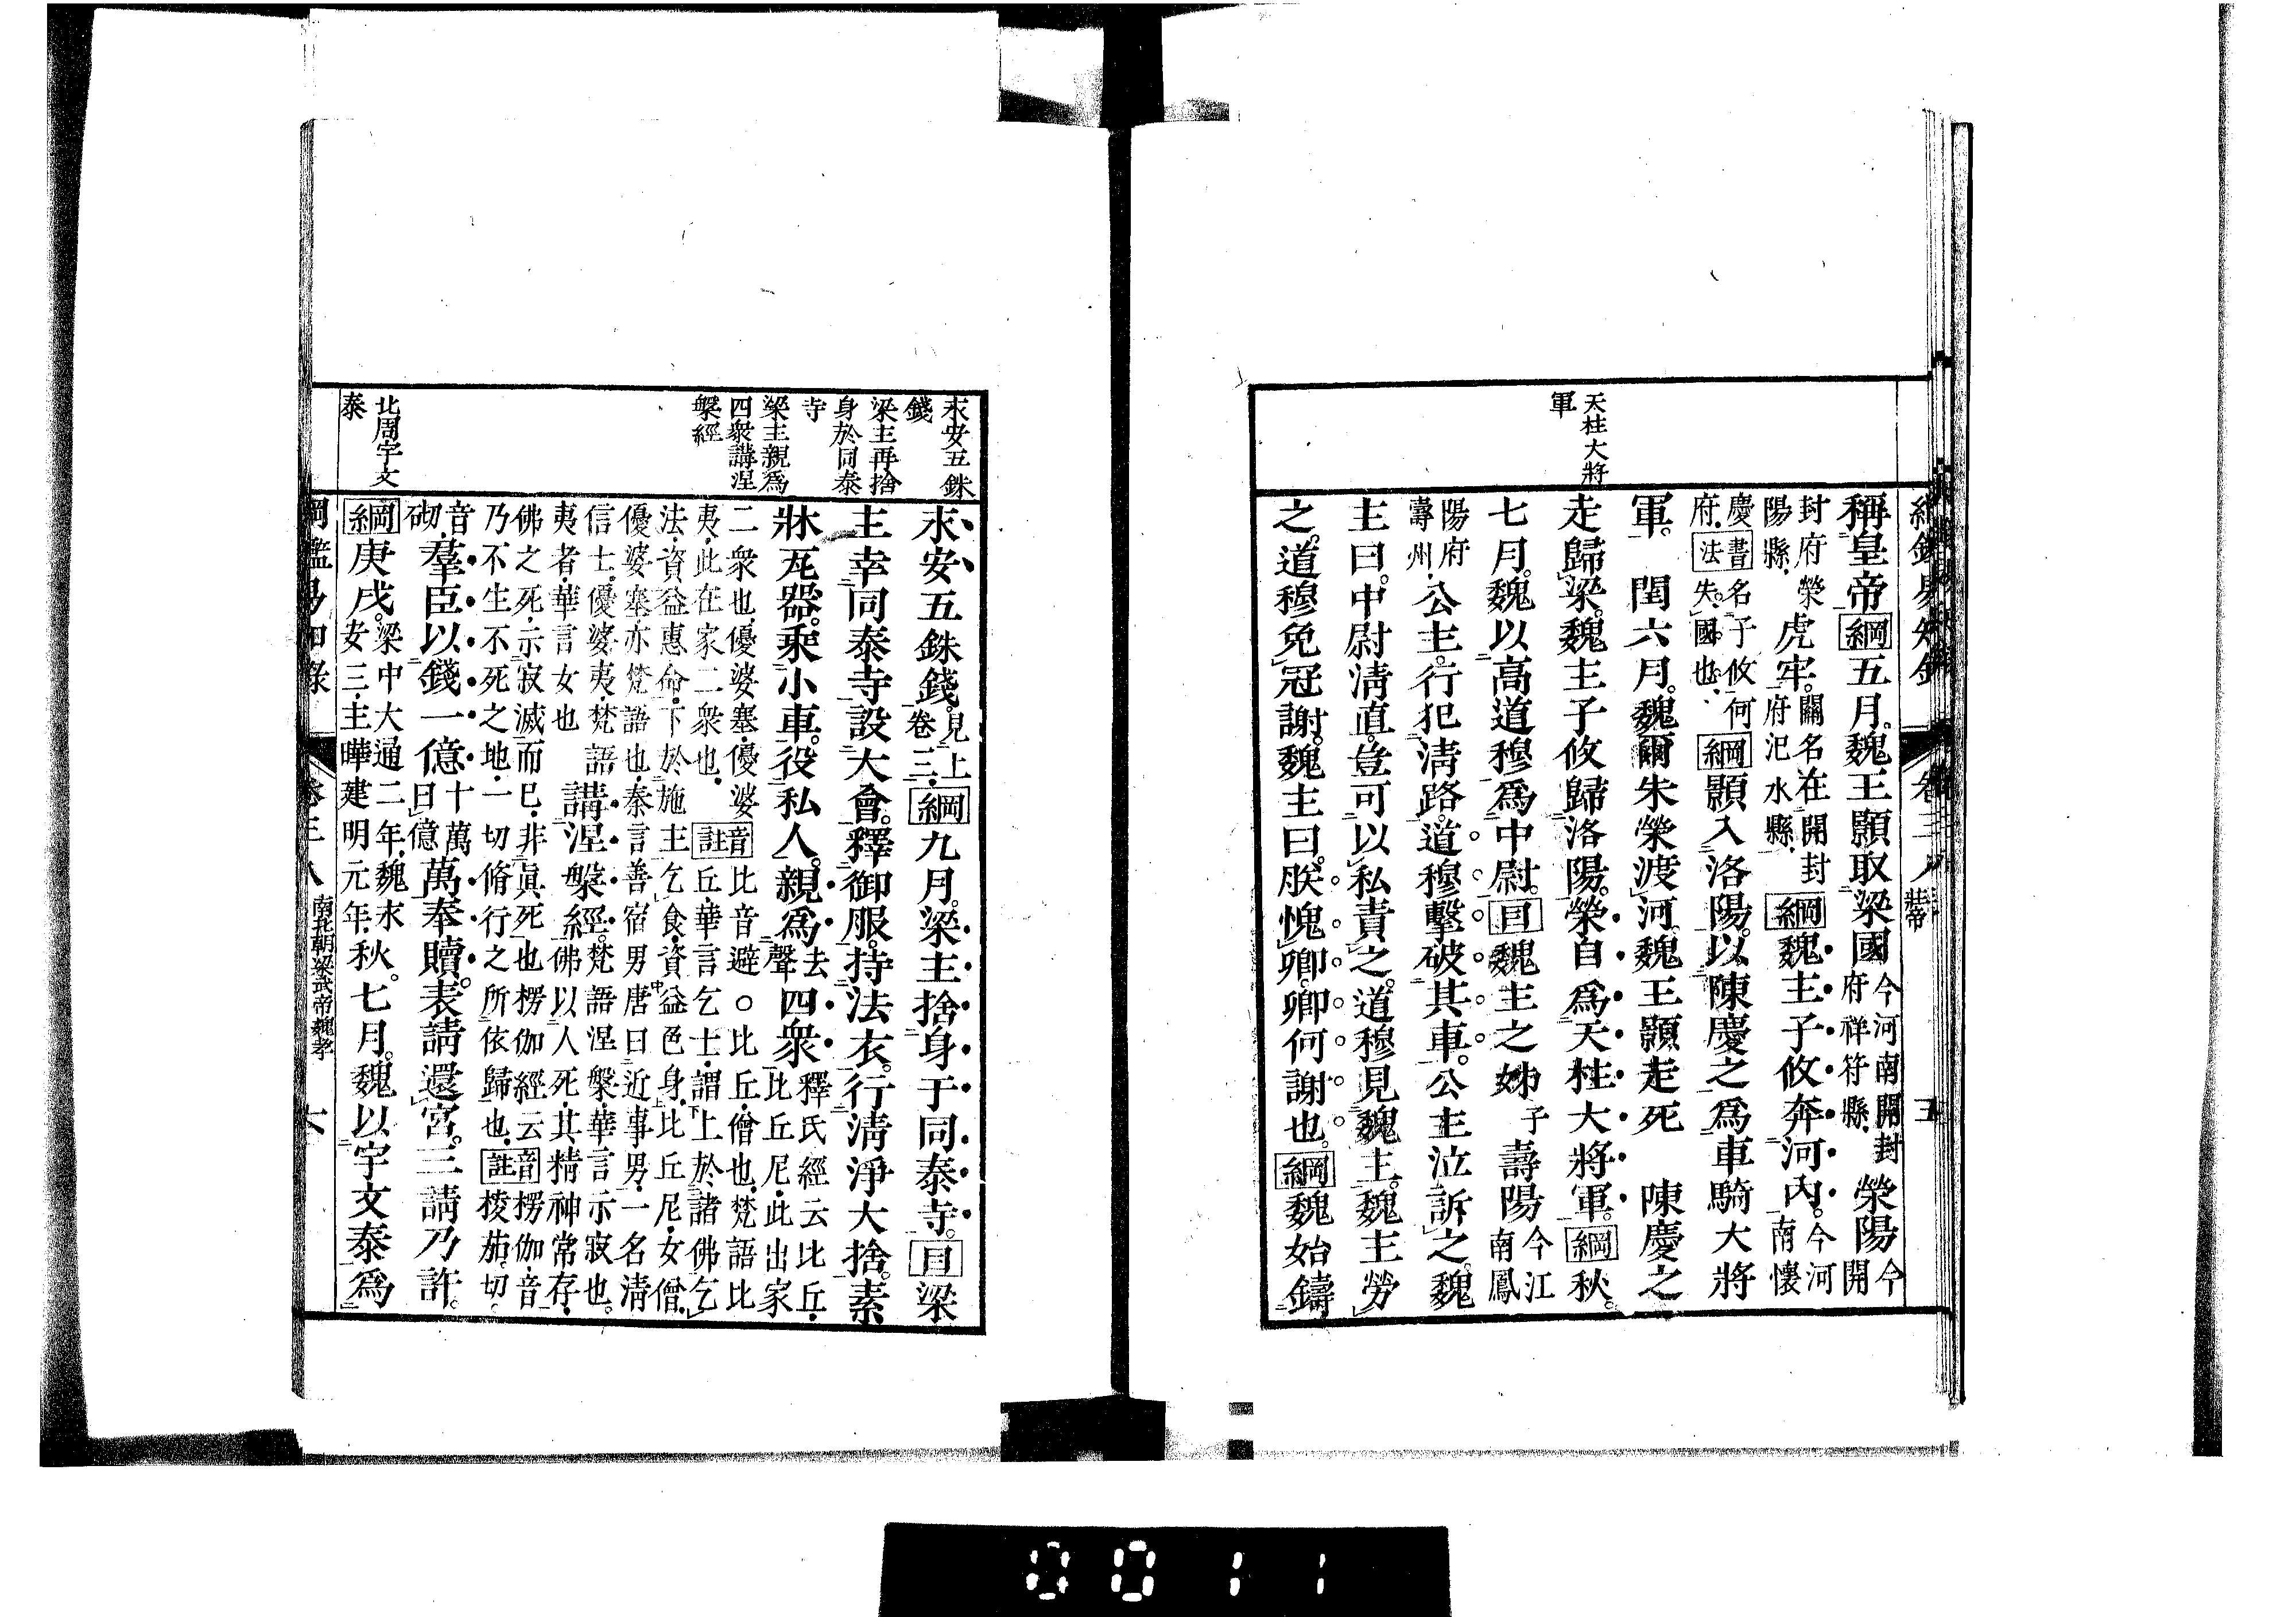 綱鑑易知錄 卷三八 莊帝 五
天柱大將
軍
稱皇帝綱五月。魏王顥取梁國今河南開封府祥符縣滎陽今開
封府滎陽縣虎牢。關名在開封府汜水縣綱魏主子攸奔河內。今河南懷
慶府書法名子攸何失國也綱顥入洛陽。以陳慶之爲車騎大將
軍。閏六月。魏爾朱榮渡河。魏王顥走死 陳慶之
走歸梁。魏主子攸歸洛陽。榮自爲天柱大將軍。綱秋。
七月。魏以高道穆爲中尉。目魏主之姊子壽陽今江南鳳
陽府壽州公主。行犯清路。道穆擊破其車。公主泣訴之。魏
主曰。中尉清直。豈可以私責之。道穆見魏主。魏主勞
之。道穆免冠謝。魏主曰。朕愧卿。卿何謝也。綱魏始鑄
永安五銖
錢
梁主再捨
身於同泰
寺
梁主親爲
四衆講涅
槃經
北周宇文
泰
永安五銖錢。見上卷三綱九月。梁主捨身于同泰寺。目梁
主幸同泰寺設大會。釋御服。持法衣。行清淨大捨。素
牀瓦器。乘小車。役私人。親爲去聲四衆釋氏經云比丘比丘尼此出家
二衆也優婆塞優婆夷此在家二衆也音註比音避○比丘僧也梵語比丘華言乞士謂上於諸佛乞
法資益惠命下於施主乞食資益色身比丘尼女僧優婆塞亦梵語也秦言善宿男唐曰近事男一名清
信士優婆夷梵語夷者華言女也講涅槃經。梵語涅槃華言示寂也。佛以人死其精神常存
佛之死示寂滅而已非眞死也楞伽經云乃不生不死之地一切脩行之所依歸也音註楞伽音棱茄切
音砌羣臣以錢一億十萬曰億萬奉贖。表請還宮。三請乃許。
綱庚戌。梁中大通二年魏永安三主曄建明元年秋。七月。魏以宇文泰爲
綱鑑易知錄 卷三八 南北朝梁武帝魏孝 六
0011